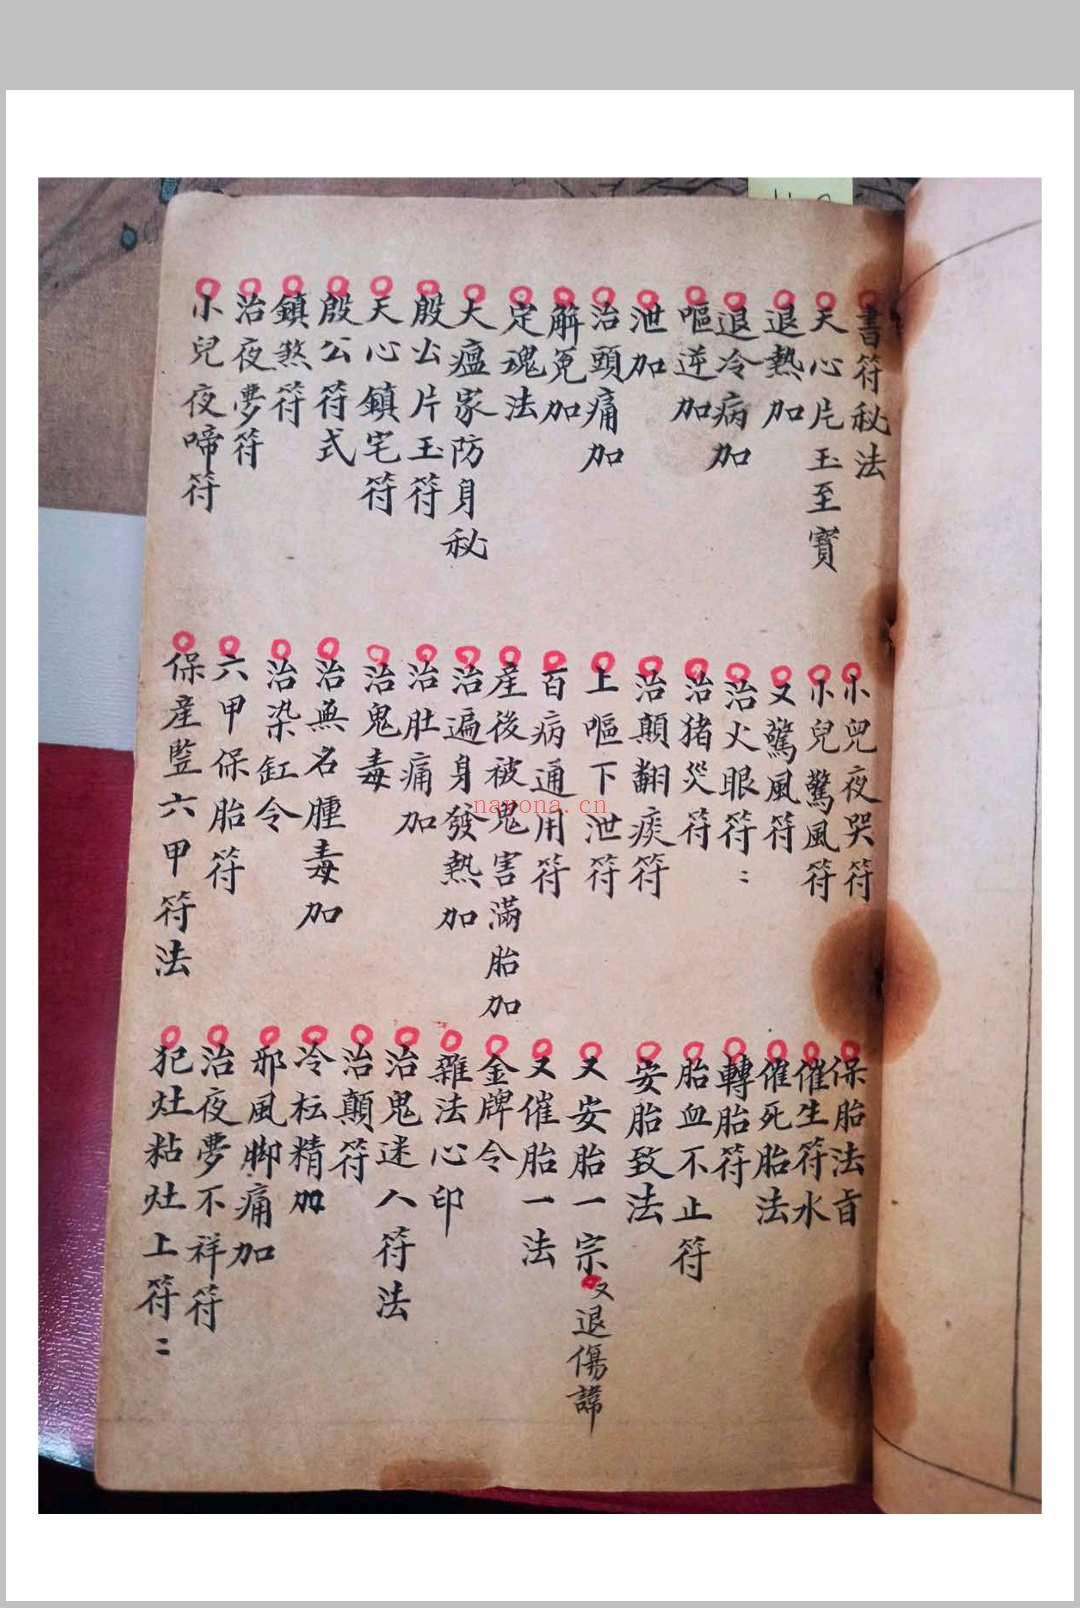 書符秘法
天心片玉至寳
退熱加
退冷病加
嘔逆加
泄加
治頭痛加
解冤加
定魂法
大瘟家防身秘
殷公片玉符
天心鎮宅符
殷公符式
鎮煞符
治夜夢符
小兒夜啼符
小兒夜哭符
小兒驚風符
又驚風符
治火眼符：
治猪災符
治顛翻痰符
上嘔下泄符
百病通用符
産後被鬼害滿胎加
治遍身發熱加
治肚痛加
治鬼毒
治無名腫毒加
治染缸令
六甲保胎符
保産監六甲符法
保胎法旨
催生符水
催死胎法
轉胎符
胎血不止符
安胎致法
又安胎一宗又退傷諱
又催胎一法
金牌令
雜法心印
治鬼迷人符法
治顛符
冷枟精加
邪風脚痛加
治夜夢不祥符
犯灶粘灶上符：
nayona.cn